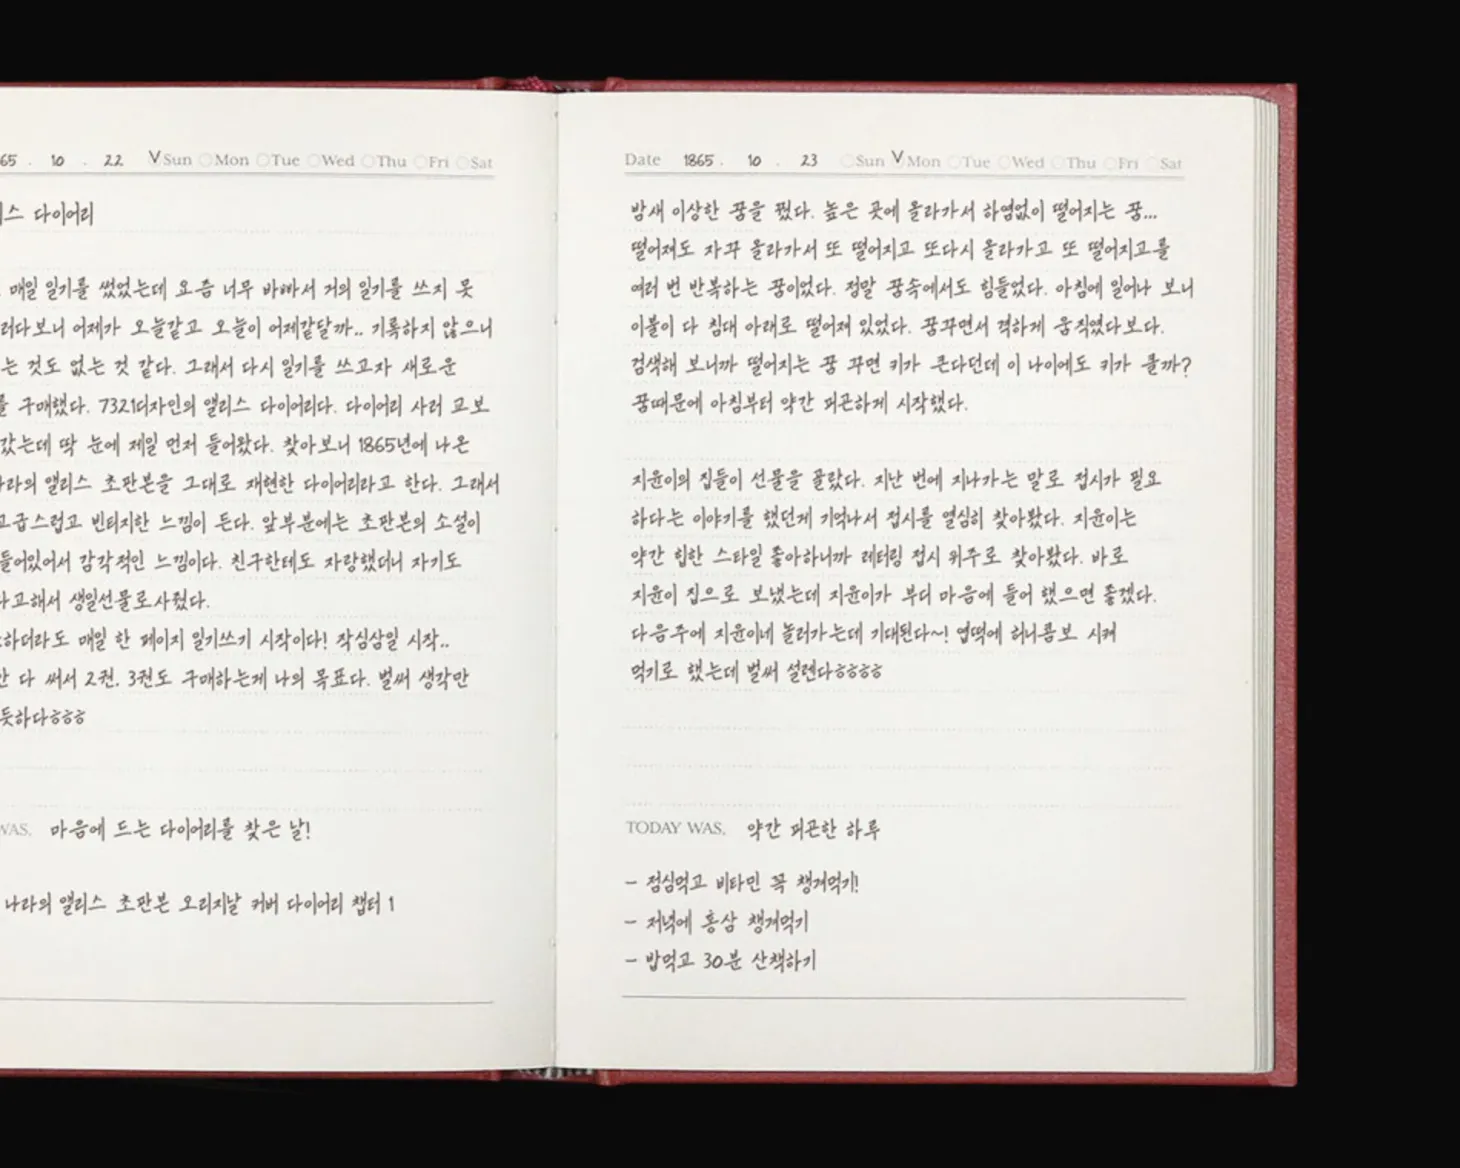 65 . 10 . 22 VSun Mon Tue Wed Thu Fri Sat
스 다이어리
매일 일기를 썼었는데 요즘 너무 바빠서 거의 일기를 쓰지 못
러다보니 어제가 오늘같고 오늘이 어제같달까.. 기록하지 않으니
는 것도 없는 것 같다. 그래서 다시 일기를 쓰고자 새로운
를 구매했다. 7321디자인의 앨리스 다이어리다. 다이어리 사러 교보
갔는데 딱 눈에 제일 먼저 들어왔다. 찾아보니 1865년에 나온
나라의 앨리스 초판본을 그대로 재현한 다이어리라고 한다. 그래서
고급스럽고 빈티지한 느낌이 든다. 앞부분에는 초판본의 소설이
들어있어서 감각적인 느낌이다. 친구한테도 자랑했더니 자기도
다고해서 생일선물로사줬다.
하더라도 매일 한 페이지 일기쓰기 시작이다! 작심삼일 시작..
안 다 써서 2권, 3권도 구매하는게 나의 목표다. 벌써 생각만
듯하다ㅎㅎㅎ
WAS. 마음에 드는 다이어리를 찾은 날!
나라의 앨리스 초판본 오리지날 커버 다이어리 챕터 1
Date 1865 . 10 . 23 Sun VMon Tue Wed Thu Fri Sat
밤새 이상한 꿈을 꿨다. 높은 곳에 올라가서 하염없이 떨어지는 꿈...
떨어져도 자꾸 올라가서 또 떨어지고 또다시 올라가고 또 떨어지고를
여러 번 반복하는 꿈이었다. 정말 꿈속에서도 힘들었다. 아침에 일어나 보니
이불이 다 침대 아래로 떨어져 있었다. 꿈꾸면서 격하게 움직였다보다.
검색해 보니까 떨어지는 꿈 꾸면 키가 큰다던데 이 나이에도 키가 클까?
꿈때문에 아침부터 약간 피곤하게 시작했다.
지윤이의 집들이 선물을 골랐다. 지난 번에 지나가는 말로 접시가 필요
하다는 이야기를 했던게 기억나서 접시를 열심히 찾아봤다. 지윤이는
약간 힙한 스타일 좋아하니까 레터링 접시 위주로 찾아봤다. 바로
지윤이 집으로 보냈는데 지윤이가 부디 마음에 들어 했으면 좋겠다.
다음주에 지윤이네 놀러가는데 기대된다~! 엽떡에 허니콤보 시켜
먹기로 했는데 벌써 설렌다ㅎㅎㅎㅎ
TODAY WAS. 약간 피곤한 하루
- 점심먹고 비타민 꼭 챙겨먹기!
- 저녁에 홍삼 챙겨먹기
- 밥먹고 30분 산책하기